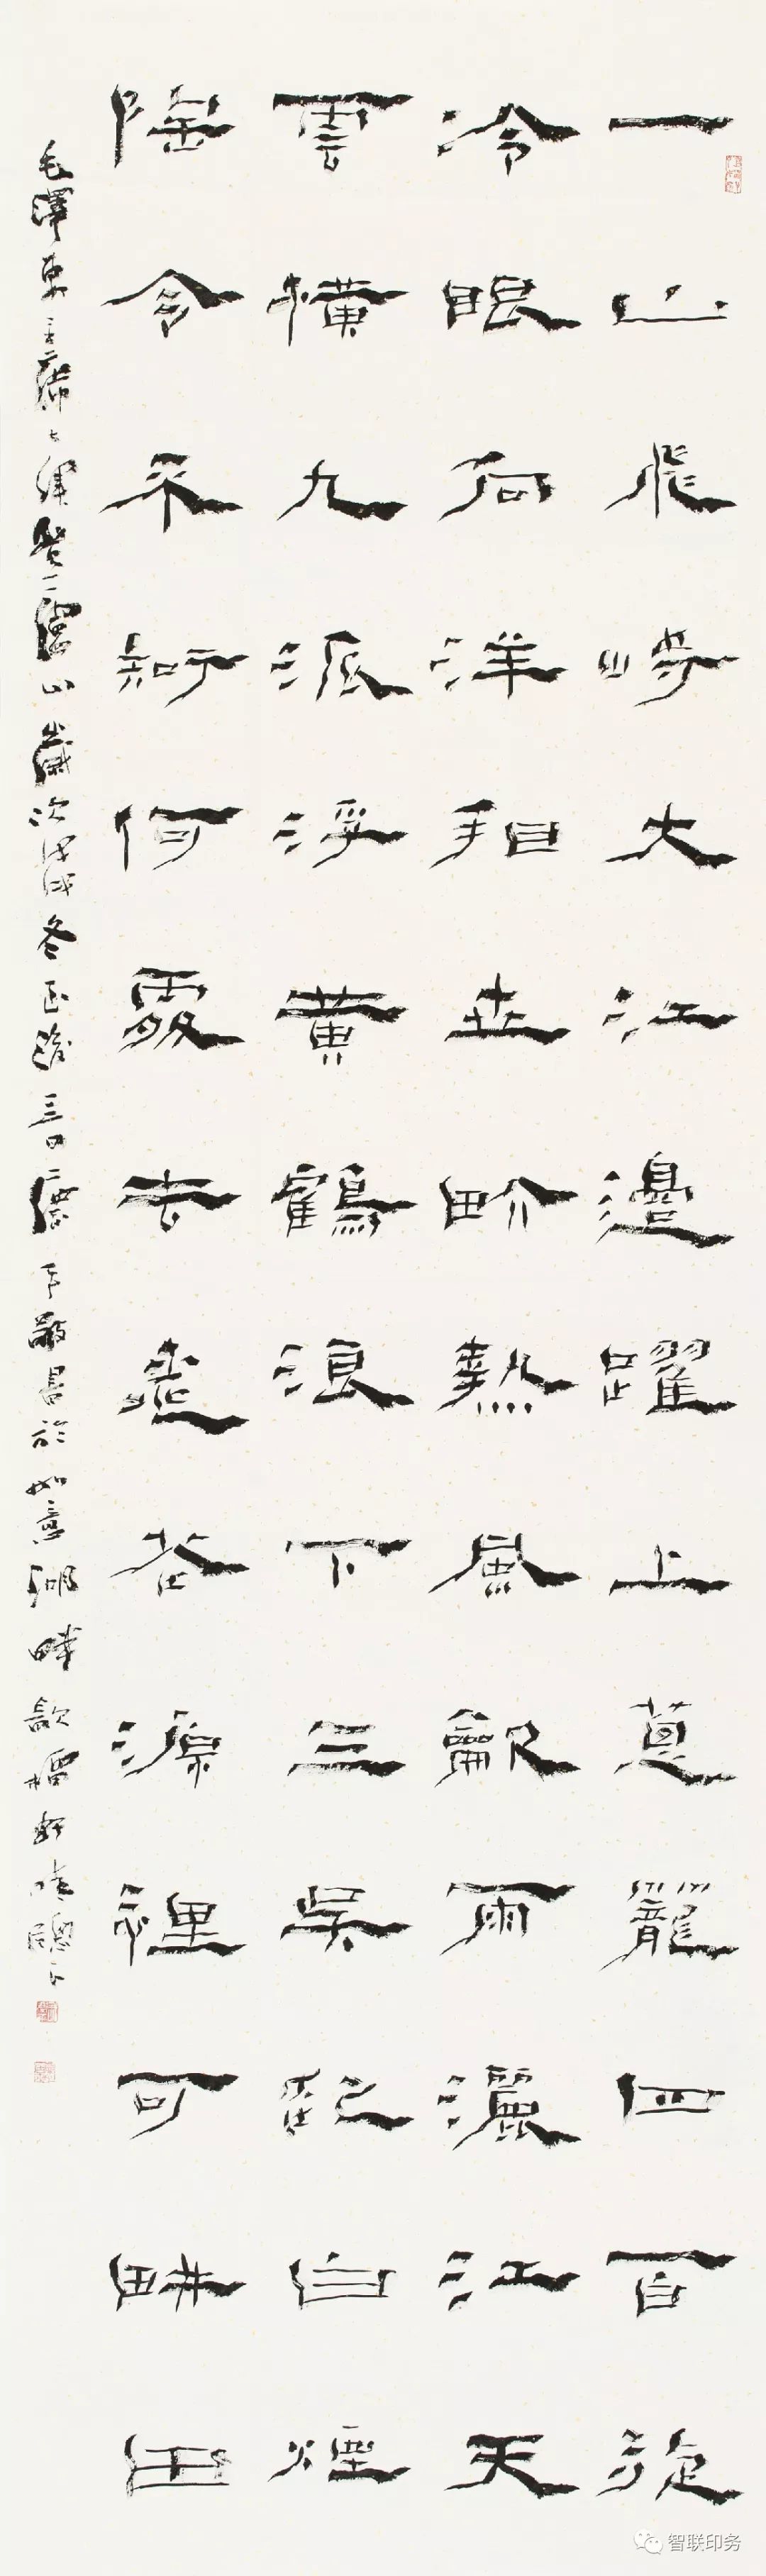 一山飛峙大江邊躍上蔥蘢四百旋
冷眼向洋看世畍熱風龡雨灑江天
雲橫九派浮黃鶴浪下三吳起白煙
陶令不知何處去桃花源裡可畊田
毛澤東主席七律登廬山歲次戊戌冬正敬書於如意湖畔軒晴牕下
智联印务